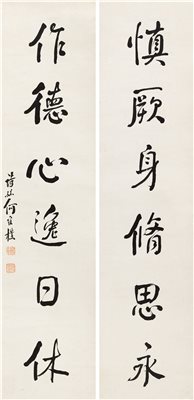 慎厥身脩思永
作德心逸日休
何維樸